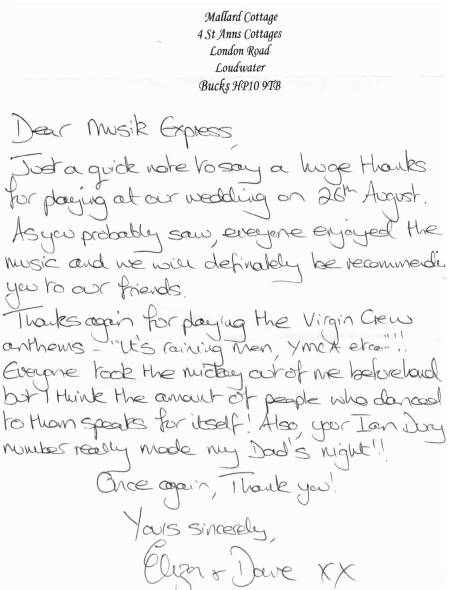 Mallard Cottage
4 St Anns Cottages
London Road
Loudwater
Bucks HP10 9TB
Dear Musik Express,
Just a quick note to say a huge thanks
for playing at our wedding on 26th August.
As you probably saw, everyone enjoyed the
music and we will definately be recommendi
you to our friends.
Thanks again for playing the Virgin Crew
anthems - "It's raining men, YMCA etc"!!
Everyone took the mickey out of me beforehand
but I think the amount of people who danced
to them speaks for itself! Also, your Ian Dury
number really made my Dad's night!!
Once again, Thank you!
Yours sincerely,
Eliza + Dave XX